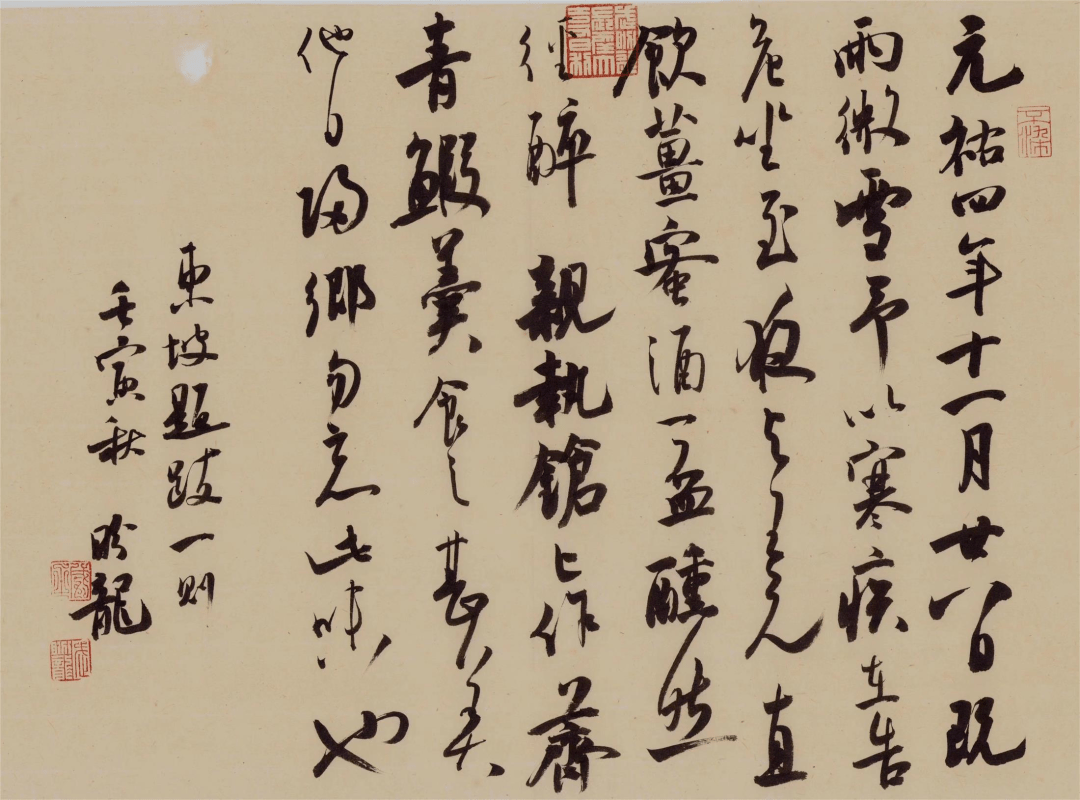 元祐四年十一月廿八日既
雨微雪予以寒疾在告
危坐至夜与王元直
飲薑蜜酒一盃醺然
徑醉親執鎗匕作薺
青鰕羹食之甚美
他日歸鄉勿忘此味也
東坡題跋一則
壬寅秋 盼龍